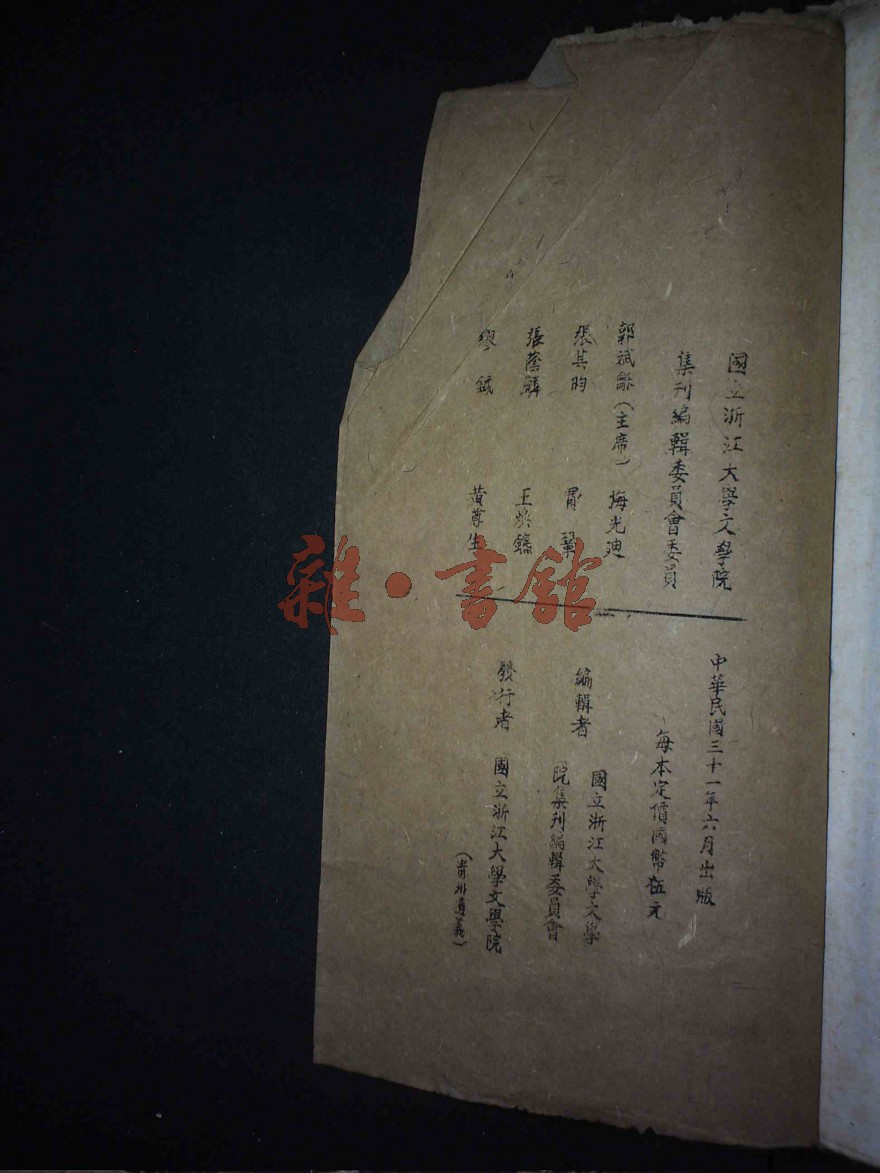 國立浙江大學文學院
集刊編輯委員會委員
郭斌龢(主席) 梅光迪
張其昀 費鞏
張蔭麟 王煥鑣
繆鉞 黃尊生
中華民國三十一年六月出版
每本定價國幣伍元
編輯者
國立浙江大學文學
院集刊編輯委員會
發行者 國立浙江大學文學院
(貴州遵義)
雜·書館